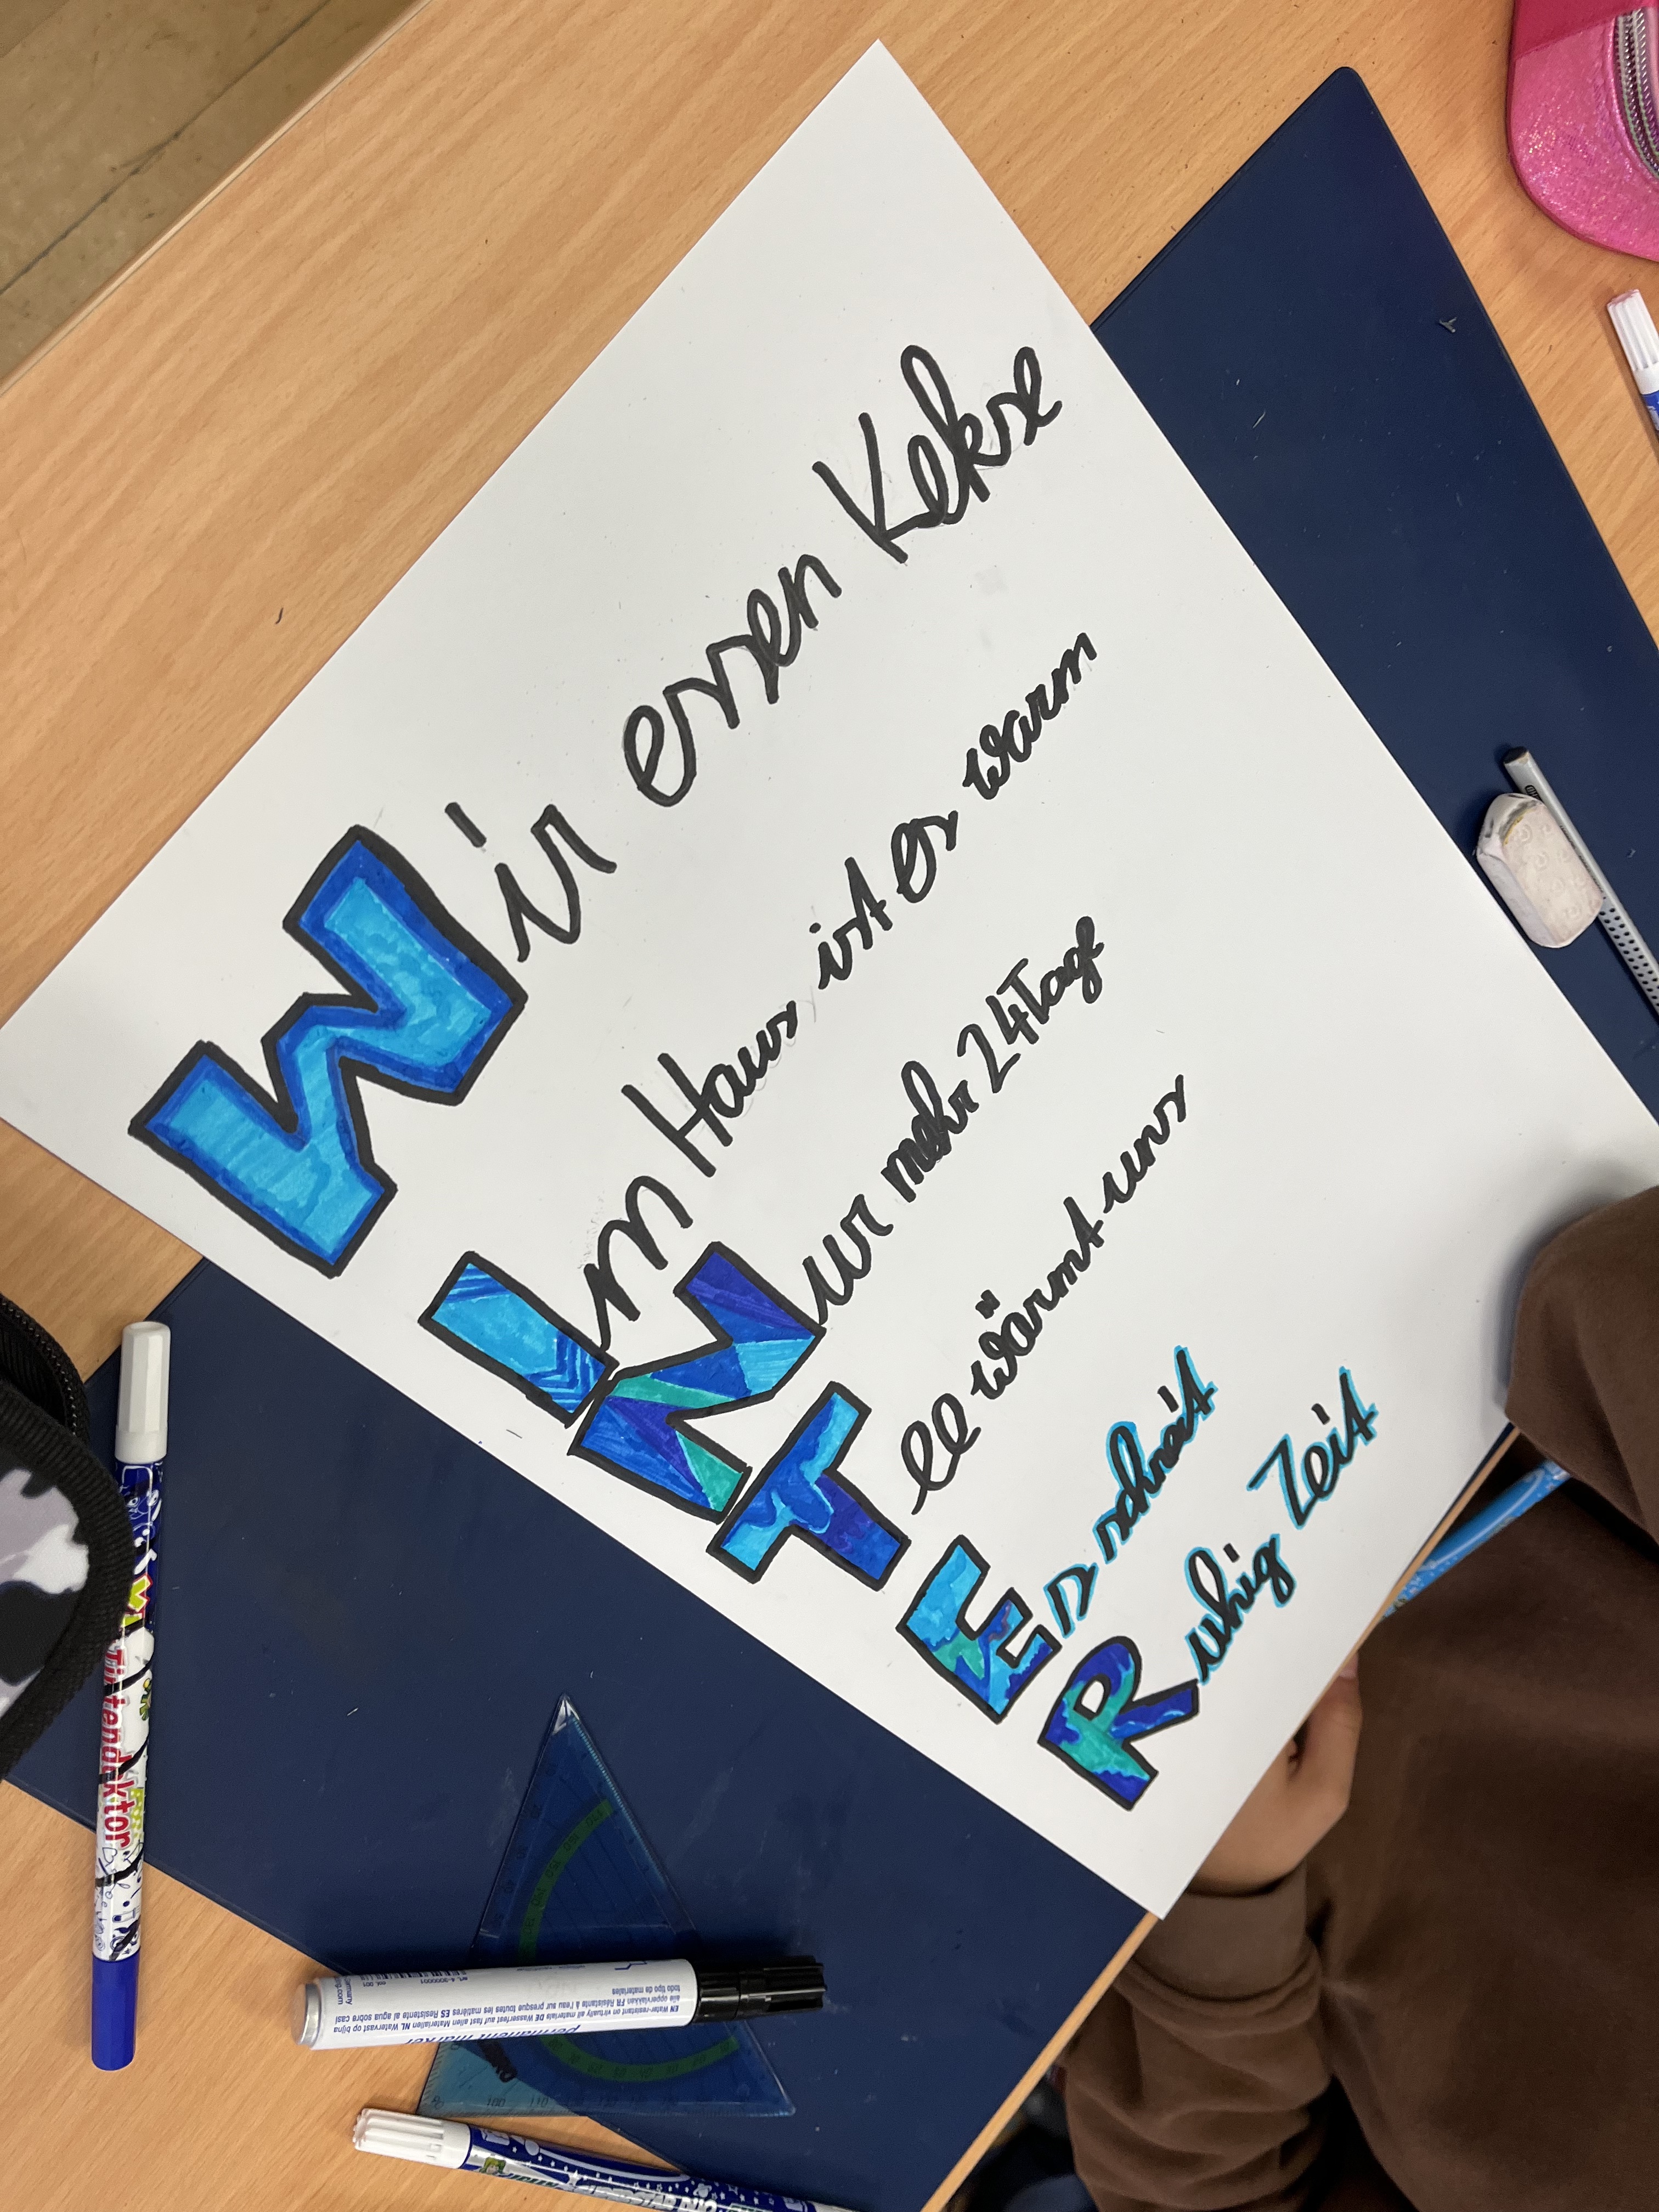 Wir essen Kekse
Im Haus ist es warm
Nur mehr 24 Tage
Tee wärmt uns
Es schneit
Ruhig Zeit
Tintendoktor
permanent marker
EN Water-resistant on virtually all materials DE Wasserfest auf fast allen Materialien NL Watervast op bijna
alle oppervlakken FR Résistante à l'eau sur presque toutes les matières ES Resistente al agua sobre casi
todo tipo de materiales